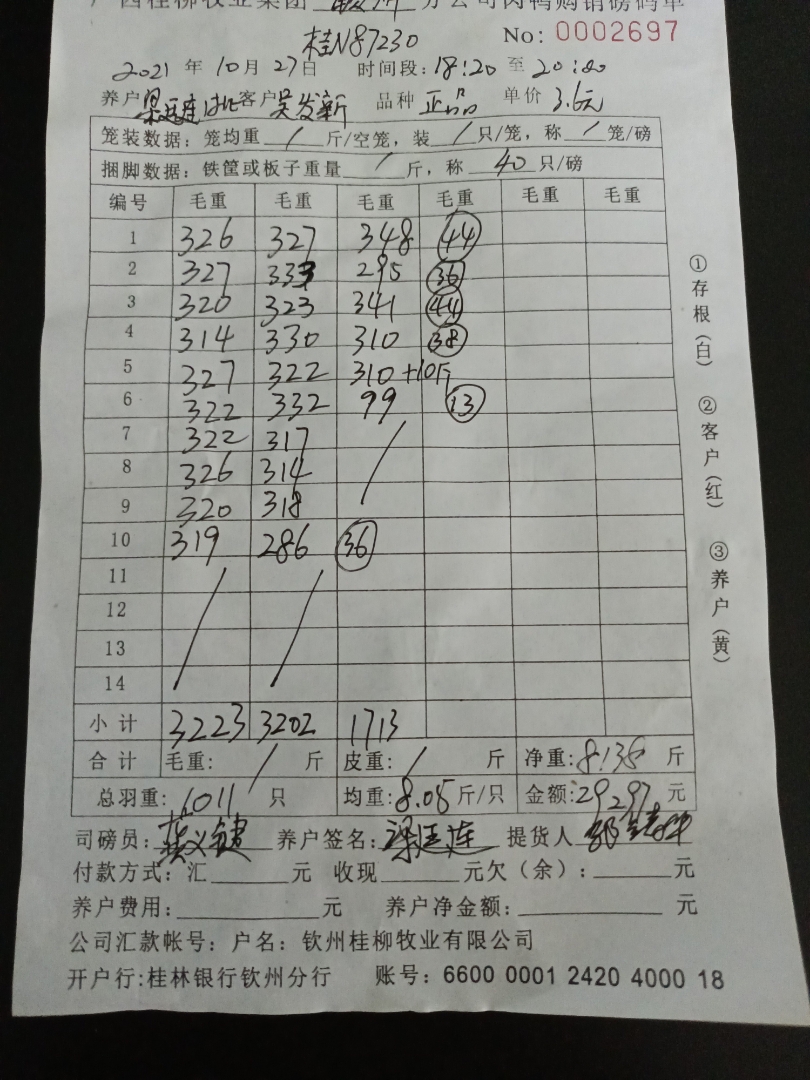 广西桂柳牧业集团 钦州 分公司肉鸭购销磅码单
桂N87230 No: 0002697
2021 年 10 月 27 日 时间段: 18:20 至 20:00
养户 客户 吴发新 品种 正品 单价 3.6元
笼装数据: 笼均重 / 斤/空笼, 装 / 只/笼, 称 / 笼/磅
捆脚数据: 铁筐或板子重量 / 斤, 称 40 只/磅
编号 毛重 毛重 毛重 毛重 毛重 毛重
1 326 327 348 44
2 327 333 295 36
3 320 323 341 44
4 314 330 310 38
5 327 322 310 +10斤
6 322 332 99 13
7 322 317 /
8 326 314
9 320 318
10 319 286 36
11 / /
12
13
14
小计 3223 3202 1713
合计 毛重: / 斤 皮重: / 斤 净重: 8138 斤
总羽重: 1011 只 均重: 8.05 斤/只 金额: 29297 元
司磅员: 养户签名: 提货人
付款方式: 汇 元 收现 元欠(余): 元
养户费用: 元 养户净金额: 元
公司汇款帐号: 户名: 钦州桂柳牧业有限公司
开户行:桂林银行钦州分行 账号: 6600 0001 2420 4000 18
①存根(白) ②客户(红) ③养户(黄)